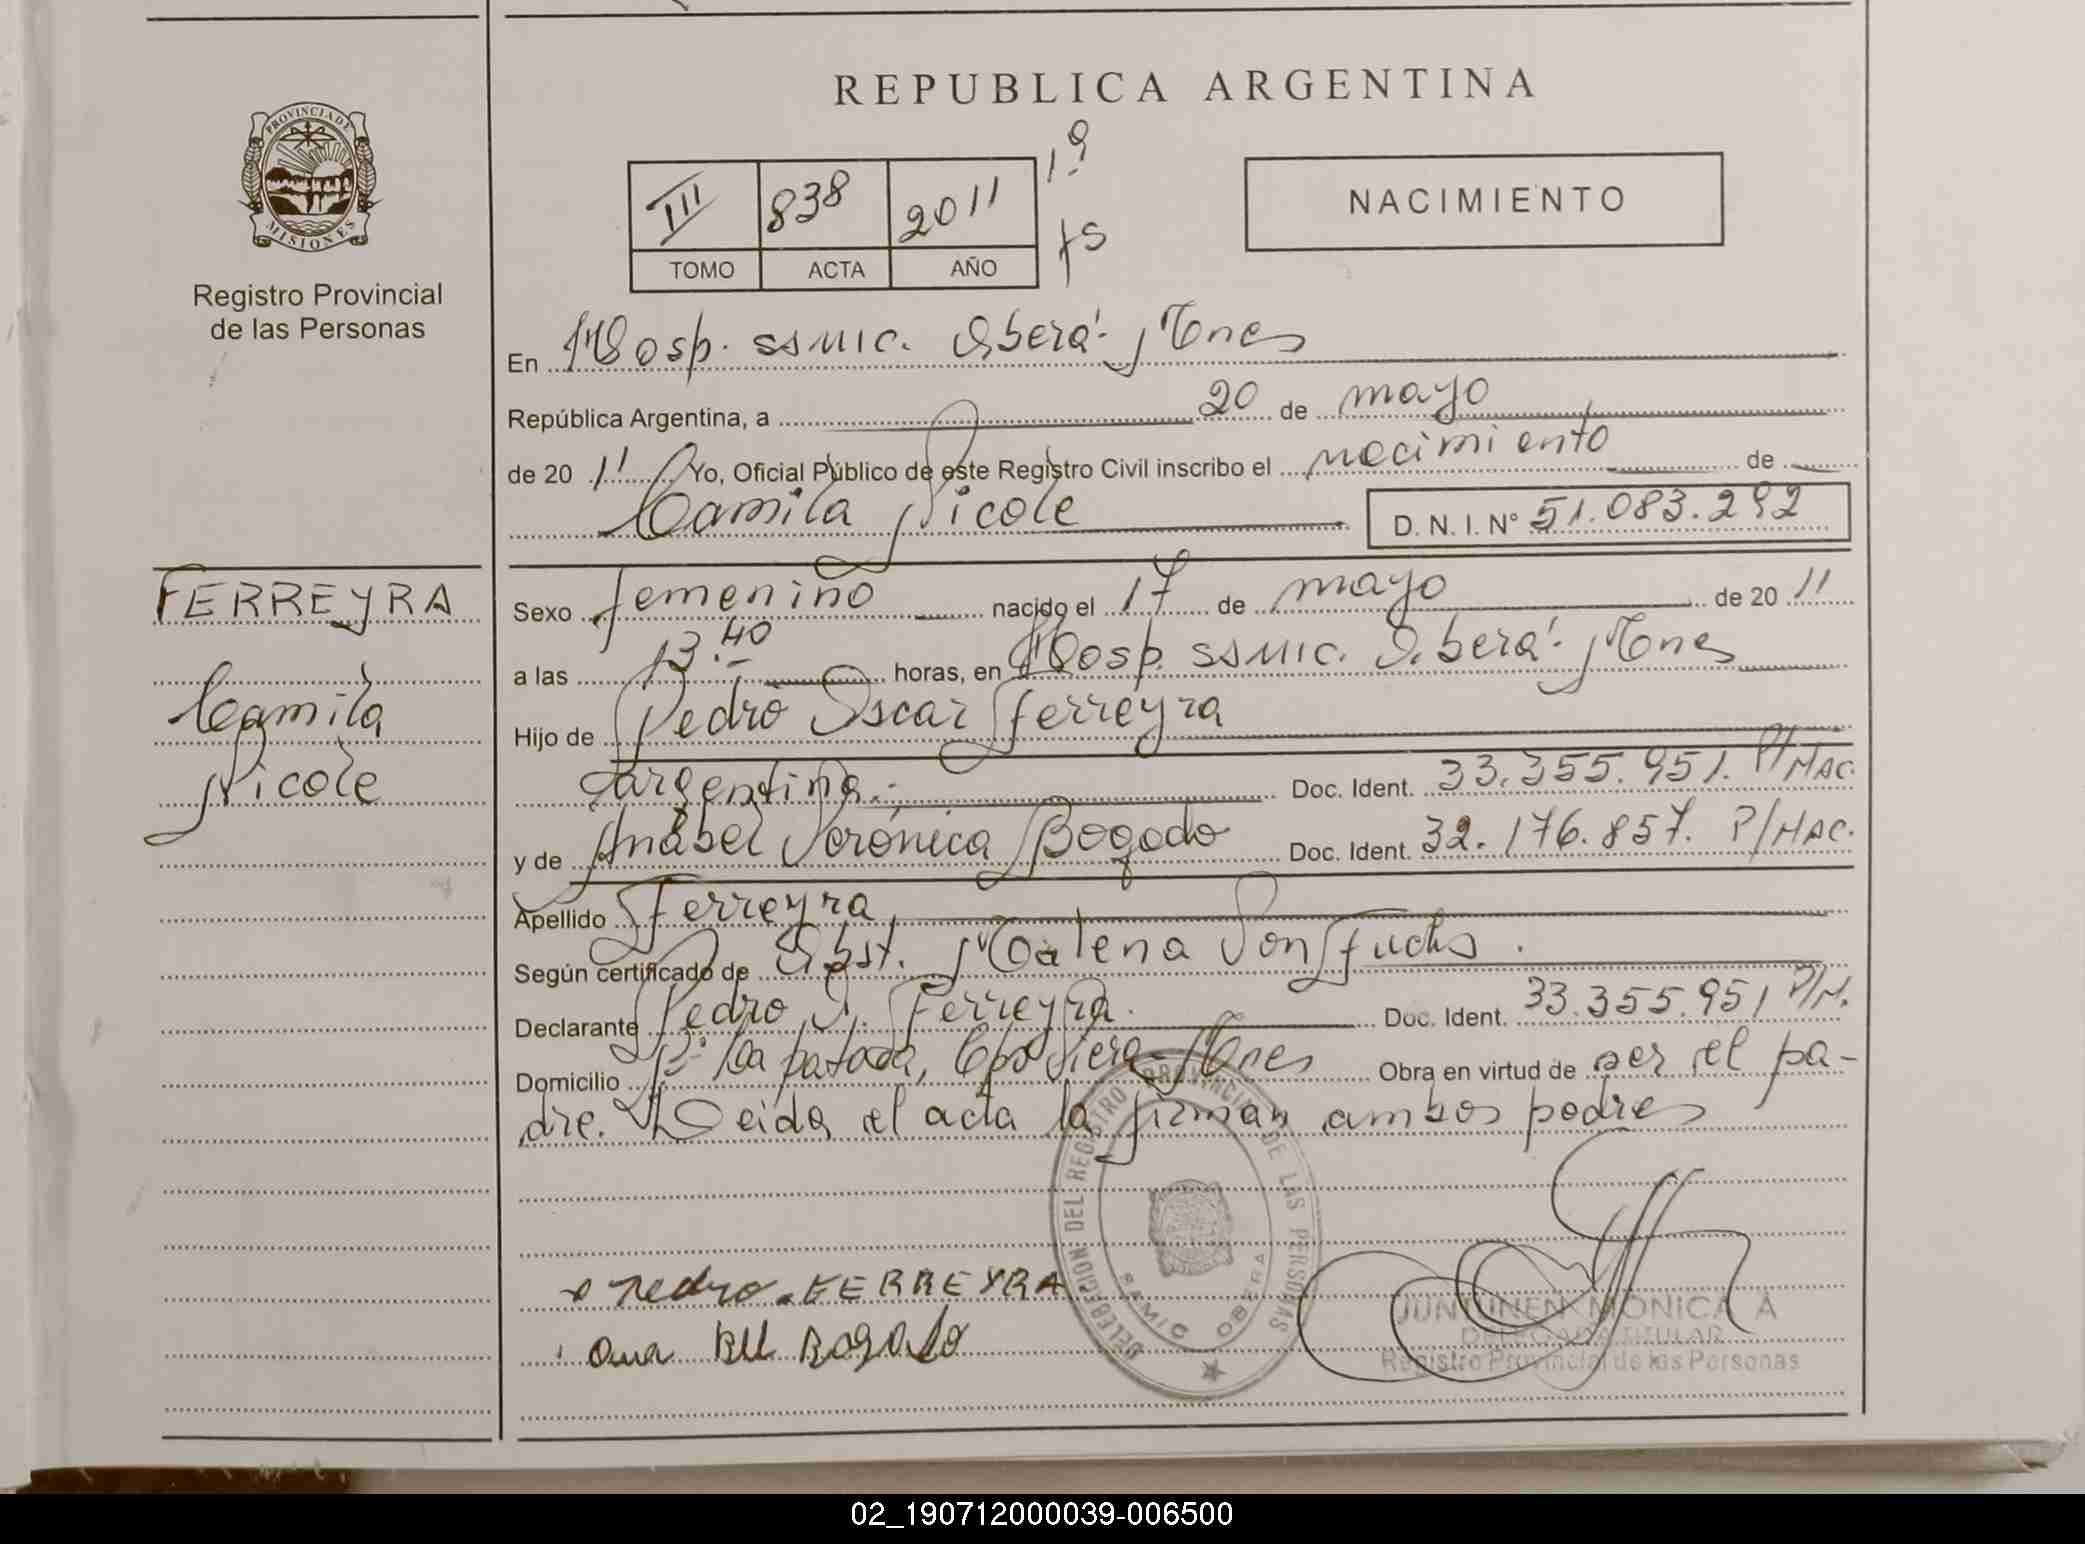 REPUBLICA ARGENTINA
PROVINCIA DE
MISIONES
Registro Provincial
de las Personas
III 838 2011 1º
TOMO ACTA AÑO fs
NACIMIENTO
En Hosp. SSMIC. Oberá- Mnes
República Argentina, a 20 de mayo
de 20 11 Yo, Oficial Público de este Registro Civil inscribo el nacimiento de
Camila Nicole D. N. I. Nº 51.083.292
FERREYRA
Camila
Nicole
Sexo femenino nacido el 17 de mayo de 20 11
a las 13.40 horas, en Hosp. SSMIC. Oberá- Mnes
Hijo de Pedro Oscar Ferreyra
Argentina.- Doc. Ident. 33.355.951. P/MAC.
y de Anabel Verónica Bogado Doc. Ident. 32.176.857. P/MAC.
Apellido Ferreyra
Según certificado de Obst. Malena Von Fuchs.
Declarante Pedro O. Ferreyra. Doc. Ident. 33.355.951 P/M.
Domicilio La patada, Cpo Viera- Mnes Obra en virtud de ser el pa-
dre. Leida el acta la firman ambos padres
Pedro. FERREYRA
Ana Bel Bogado
DELEGACION DEL REGISTRO PROVINCIAL DE LAS PERSONAS
SAMIC OBERA
JUNTUNEN MONICA A
DELEGADA TITULAR
Registro Provincial de las Personas
02_190712000039-006500